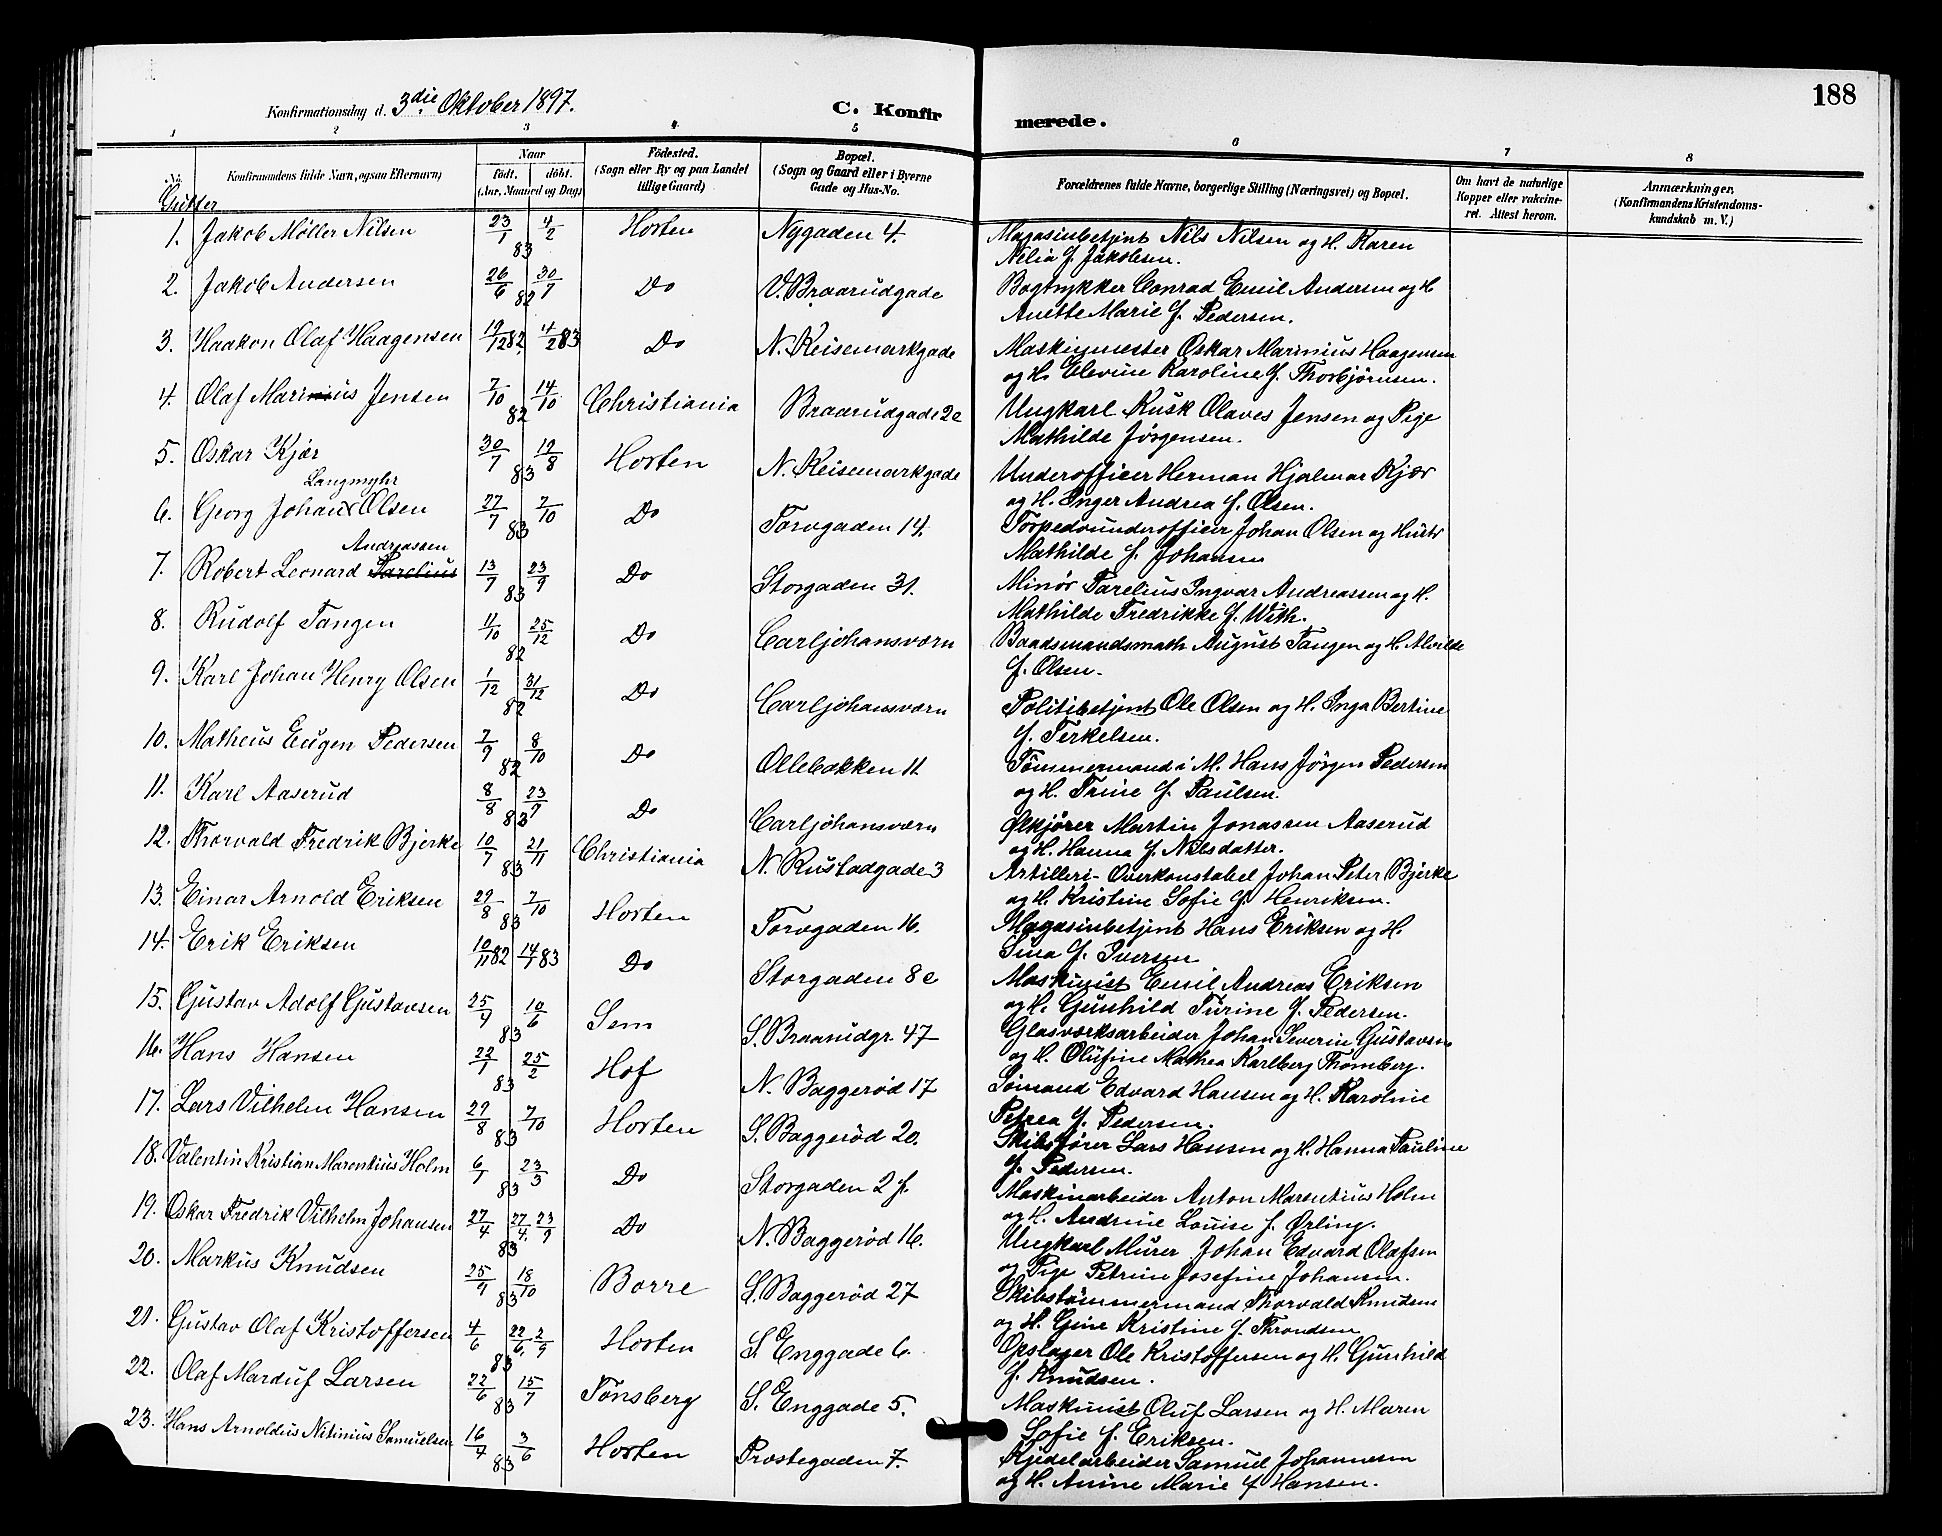 188
Konfirmationsdag d. 3die Oktober 1897.
C. Konfirmerede.
1 2 3 4 5 6 7 8
No.
Konfirmandens fulde Navn, ogsaa Efternavn)
Naar
födt. döbt.
(Aar, Maaned og Dag)
Födested.
(Sogn eller By og paa Landet
tillige Gaard)
Bopæl.
(Sogn og Gaard eller i Byerne
Gade og Hus-No.
Forældrenes fulde Navne, borgerlige Stilling (Næringsvei) og Bopæl.
Om havt de naturlige
Kopper eller vakcine-
ret. Attest herom.
Anmærkninger,
(Konfirmandens Kristendoms-
kundskab m. V.)
Gutter
1. Jakob Møller Nilsen 23/1 4/2 83 Horten Nygaden 4. Magasinbetjent Nils Nilsen og H. Karen
Nelia f. Jakobsen.
2. Jakob Andersen 26/6 30/7 82 Do V. Braarudgade Bogtrykker Conrad Emil Andersen og H
Anette Marie f. Pedersen.
3. Haakon Olaf Haagensen 19/12 82 4/2 83 Do N. Keisemarkgade Maskinmester Oskar Marinius Haagensen
og H. Elevine Karoline f. Thorbjørnsen.
4. Olaf Marinius Jensen 7/10 14/10 82 Christiania Braarudgade 2c Ungkarl Kusk Olaves Jensen og Pige
Mathilde Jørgensen.
5. Oskar Kjær 30/7 19/8 83 Horten N. Keisemarkgade Underofficer Herman Hjalmar Kjær
og H. Inger Andrea f. Olsen.
Langmyhr
6. Georg Johan Olsen 27/7 7/10 83 Do Torvgaden 14. Torpedounderofficer Johan Olsen og Hustr
Mathilde f. Johansen
Andreassen
7. Robert Leonard Tarelius 13/7 23/9 83 Do Storgaden 31. Minør Tarelius Ingvar Andreassen og H.
Mathilde Fredrikke f. With.
8. Rudolf Tangen 11/10 25/12 82 Do Carljohansværn Baadsmandsmath August Tangen og H. Alvilde
f. Olsen.
9. Karl Johan Henry Olsen 1/12 31/12 82 Do Carljohansværn Politibetjent Ole Olsen og H. Inga Bertine
f. Terkelsen.
10. Matheus Eugen Pedersen 7/9 8/10 82 Do Ollebakken 11 Tømmermand i M. Hans Jörgen Pedersen
og H. Trine f. Paulsen.
11. Karl Aaserud 8/8 23/9 83 Do Carljohansværn Ølkjører Martin Jonassen Aaserud
og H. Hanna f. Nilsdatter.
12. Thorvald Fredrik Bjerke 10/7 21/11 83 Christiania N. Rustadgade 3 Artilleri-Overkonstabel Johan Peter Bjerke
og H. Kristine Sofie f. Henriksen.
13. Einar Arnold Eriksen 29/8 7/10 83 Horten Torvgaden 16. Magasinbetjent Hans Eriksen og H.
Sina f. Iversen
14. Erik Eriksen 10/11 82 14/1 83 Do Storgaden 8c Maskinist Emil Andreas Eriksen
og H. Gunhild Turine f. Pedersen.
15. Gustav Adolf Gustavsen 25/4 10/6 83 Sem S. Braarudgr. 47 Glasværksarbeider Johan Severin Gustavsen
og H. Olufine Mathea Karlberg Thomberg.
16. Hans Hansen 22/1 25/2 83 Hof N. Baggerød 17 Sömand Edvard Hansen og H. Karoline
Petrea f. Pedersen.
17. Lars Vilhelm Hansen 29/8 7/10 83 Horten S. Baggerød 20. Skibsfører Lars Hansen og H. Hanna Pauline
f. Pedersen.
18. Valentin Kristian Marentius Holm 6/1 23/3 83 Do Storgaden 2 f. Maskinarbeider Anton Marentius Holm
og H. Andrine Louise f. Ørling.
19. Oskar Fredrik Vilhelm Johansen 27/4 27/4. 23/9 83 Do N. Baggerød 16. Ungkarl Murer Johan Edvard Olafsen
og Pige Petrine Josefine Johansen.
20. Markus Knudsen 25/9 18/10 83 Borre S. Baggerød 27 Skibstömmermand Thorvald Knudsen
og H. Gine Kristine f. Throndsen
21. Gustav Olaf Kristoffersen 4/6 22/6. 2/9 83 Horten S. Enggade 6. Opslager Ole Kristoffersen og H. Gunhild
f. Knudsen.
22. Olaf Marduf Larsen 22/6 15/7 83 Tønsberg S. Enggade 5. Maskinist Oluf Larsen og H. Maren
Sofie f. Eriksen.
23. Hans Arnoldus Nitinius Samuelsen 16/4 3/6 83 Horten Prostegaden 7. Kjedelarbeider Samuel Johannesen
og H. Anine Marie f Hansen.